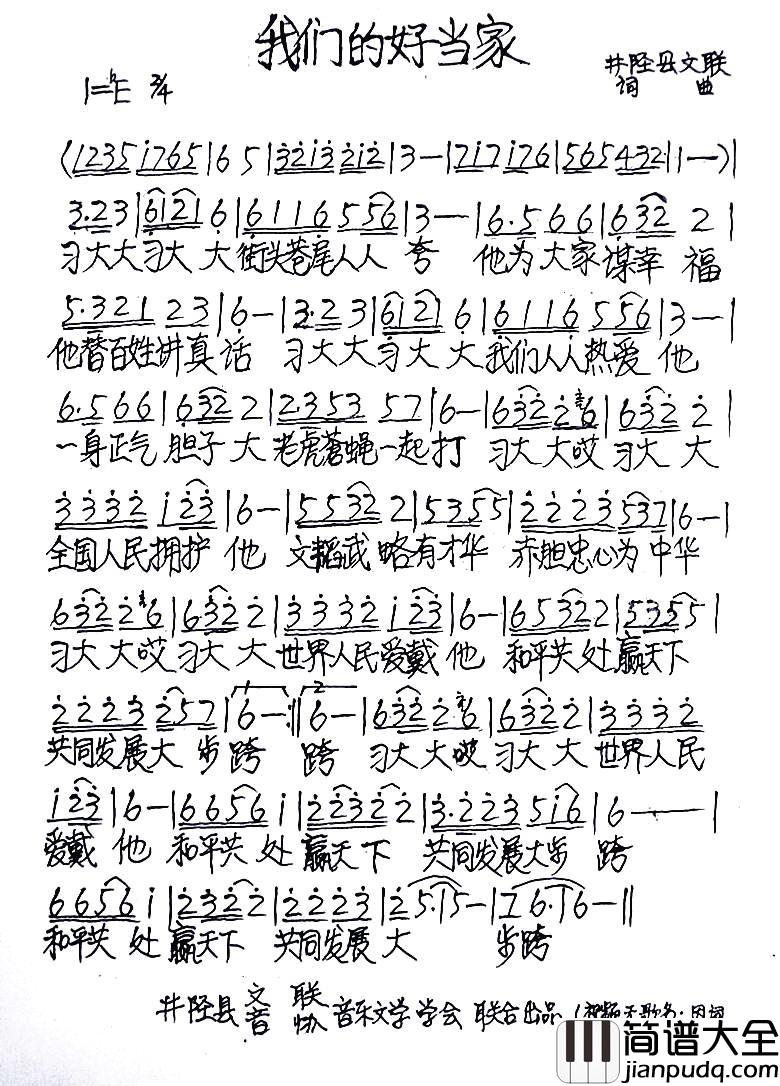 我们的好当家
井陉县文联
词 曲
1=♭E 2/4
(1235 i765|6 5|3̇2̇i3̇ 2̇i2̇|3-|7i7 i76|565 432|1-)|
3·2 3|6i2̇1 6|6116 556|3-|6·5 6 6|632 2|
习大大习大 大街头巷尾人人 夸 他为大家谋幸 福
5·321 23|6-|3·2 3|6i21 6|6116 556|3-|
他替百姓讲真话 习大大习大 大我们人人热爱 他
6·5 6 6|632 2|2·353 57|6-|63̇2̇ 2̇6|63̇2̇ 2̇|
一身正气 胆子 大 老虎苍蝇一起打 习大 大哎 习大 大
3̇3̇3̇2̇ i2̇3̇|6-|5532 2|5355|2̇2̇2̇3̇ 537|6-|
全国人民拥护 他 文韬武 略有才华 赤胆忠心为 中华
63̇2̇ 2̇6|63̇2̇ 2̇|3̇3̇3̇2̇ i2̇3̇|6-|6532 2|5355|
习大 大哎 习大 大 世界人民爱戴 他 和平共 处赢天下
2̇2̇2̇3̇ 2̇57|6-:‖6-|63̇2̇ 2̇6|63̇2̇ 2̇|3̇3̇3̇2̇
共同发展大 步 跨 跨 习大 大哎 习大 大 世界人民
i2̇3̇|6-|6656 i|2̇2̇3̇2̇ 2̇|3̇·2̇2̇3̇ 5i6|6--|
爱戴 他 和平共 处 赢天 下 共同发展大步 跨
6656 i|2̇3̇2̇ 2̇|2̇2̇2̇3̇|2̇ 5·i5-|76·i6-‖
和平共 处 赢天下 共同发展 大 步跨
井陉县 文 联
音 协 音乐文学学会 联合出品
简谱大全
jianpudq.com